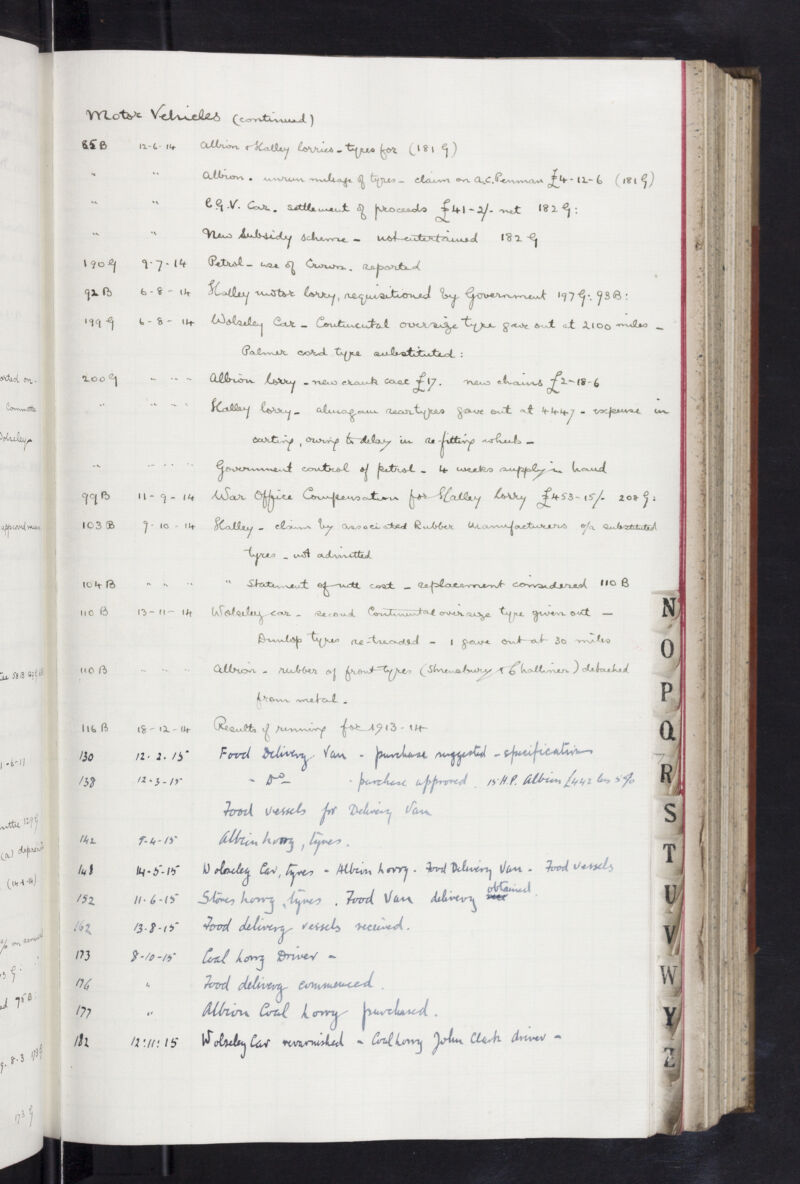 Motor Vehicles (continued)
85 B 12-6-14 Albion & Halley lorries - tyres for (181 G)
" " Albion - unrun mileage of tyres - claim on A.C. Penman £4-12-6 (181 G)
" " C.G.V. Car. settlement of proceeds £41-2/- net 182 G:
" " New Subsidy scheme - not entertained 182 G
190 G 9-7-14 Petrol - use of Crown. reported
92 B 6-8-14 Halley motor lorry, requisitioned by Government 197 G: 93 B:
199 G 6-8-14 Wolseley Car - Continental oversize tyre gave out at 2100 miles -
Palmer cord tyre substituted:
200 G " " " Albion lorry - new crank case £17. new chains £2-18-6
" " " " Halley lorry - almagam rear tyres gave out at 4447 - expense in
carting, owing to delay in re-fitting wheels -
" " " " Government control of petrol - 4 weeks supply in hand
99 B 11-9-14 War Office Compensation for Halley lorry £453-15/- 208 G:
103 B 9-10-14 Halley - claim by associated Rubber Manufacturers o/a substituted
tyres - not admitted
104 B " " " " Statement of nett cost - replacement considered 110 B
110 B 13-11-14 Wolseley car - second Continental oversize tyre given out -
Dunlop tyres re-treaded - 1 gave out at 30 miles
110 B " " " Albion - rubber of front tyres (Shrewsbury & Challiner) detached
from metal.
116 B 18-12-14 Results of running for 1913-14
130 12.2.15 Food Delivery Van - purchase suggested - specifications
138 12-3-15 - Do - purchase approved. 15 H.P. Albion £442 less 5%
Food vessels for Delivery Van
142 9-4-15 Albion lorry, tyres.
148 14-5-15 Wolseley Car, tyres - Albion lorry - Food Delivery Van - Food vessels
152 11.6-15 Stores lorry, tyres. Food Van delivery obtained.
162 13.8-15 Food delivery vessels received.
173 8-10-15 Coal lorry Driver -
176 " Food delivery commenced.
177 " Albion Coal lorry purchased.
182 12:11:15 Wolseley Car revarnished - Coal lorry John Clark driver -
N
O
P
Q
R
S
T
U
V
W
Y
Z
orted on.
Committee
Wolseley
approved
1-6-11
129 G
(a)
(14-8-14)
95 B:
8.3
173 G